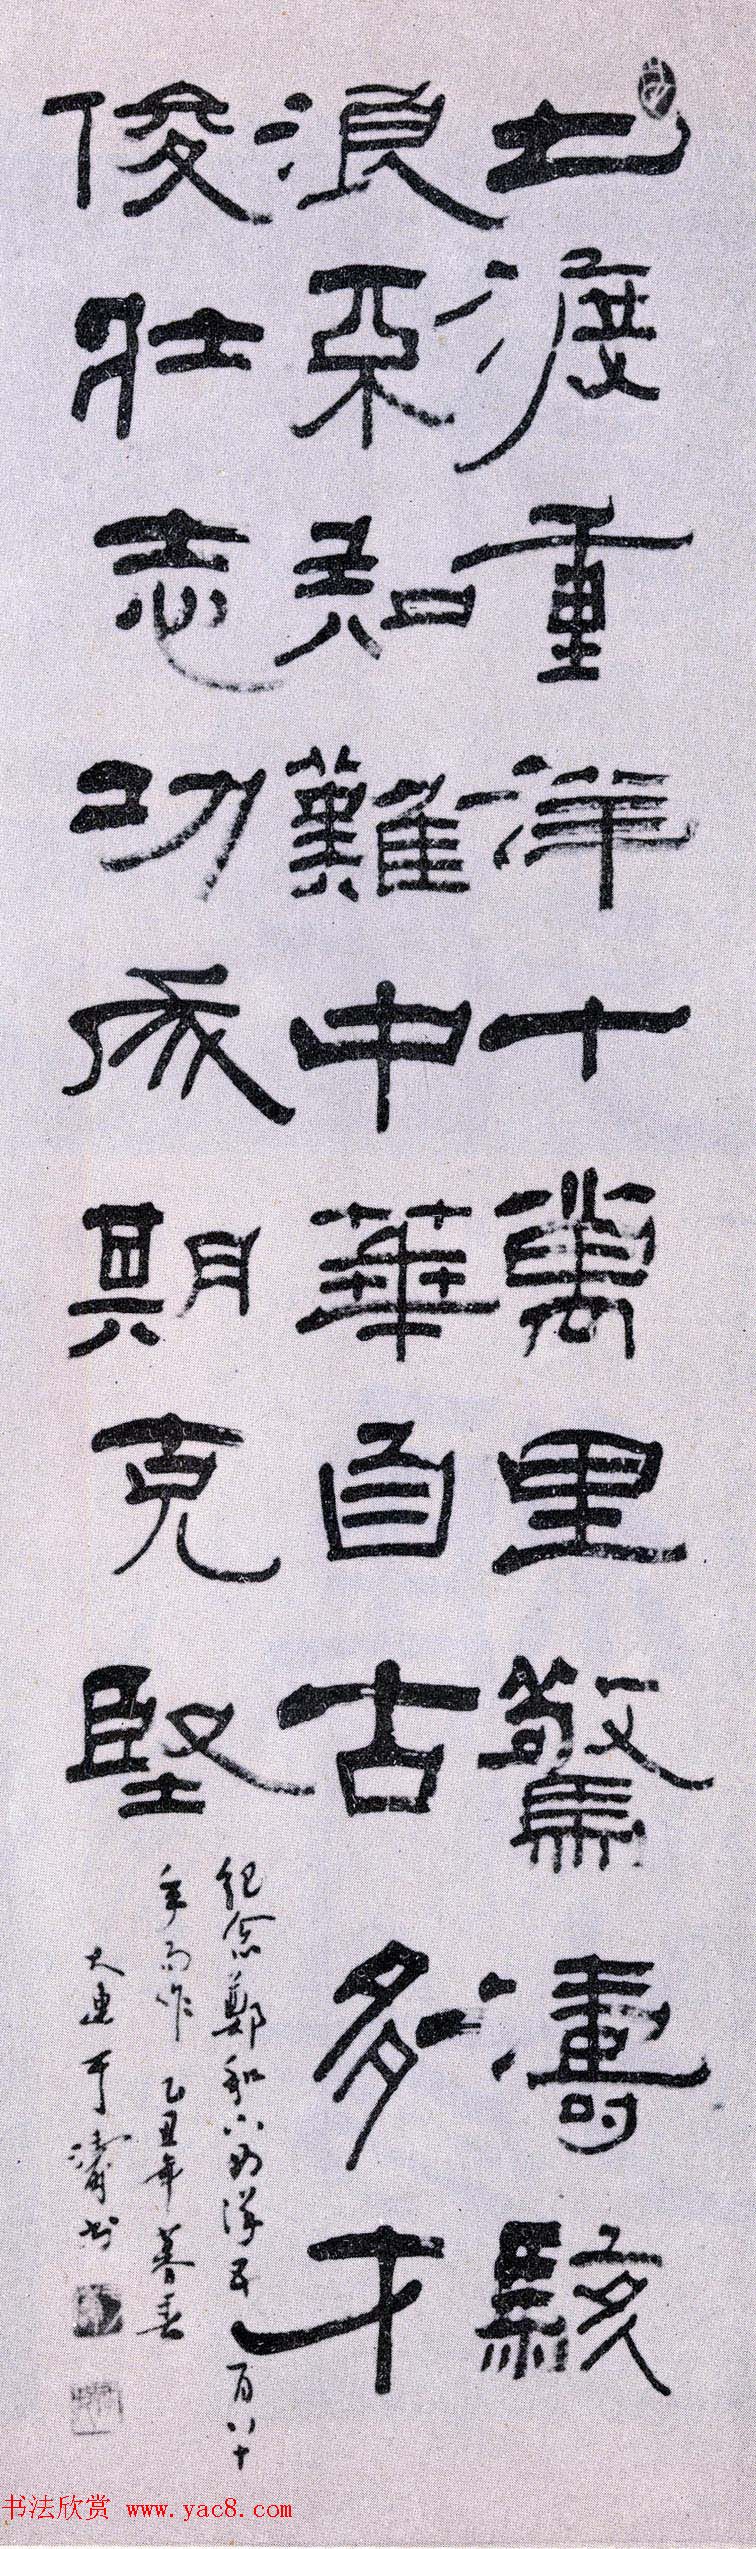 七渡重洋十萬里驚濤駭
浪不知難中華自古多才
俊壯志功成期克堅
紀念鄭和下西洋五百八十
年而作 乙丑年暮春
大連于濤书
书法欣赏 www.yac8.com